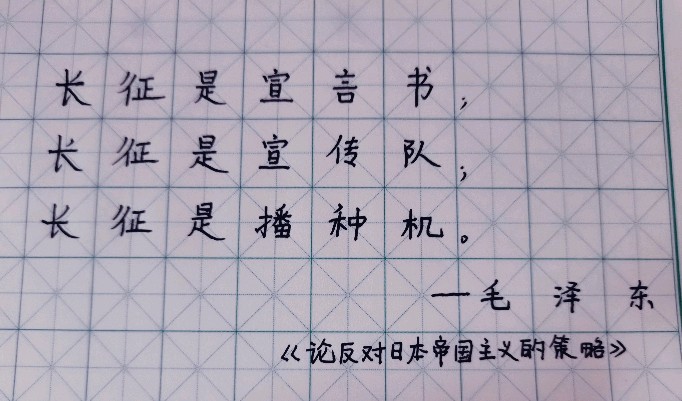 长征是宣言书;
长征是宣传队;
长征是播种机。
—毛泽东
《论反对日本帝国主义的策略》